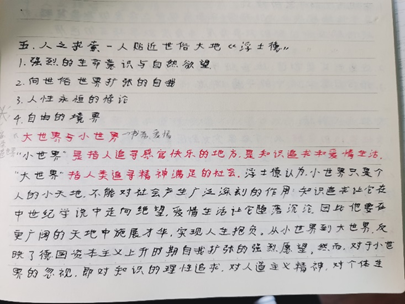 五.人之求索—人贴近世俗大地《浮士德》
1.强烈的生命意识与自然欲望
2.向世俗世界扩张的自我
3.人性永恒的悖论
4.自由的境界
大世界与小世界—书斋、爱情
"小世界"是指人追寻感官快乐的地方,是知识追求和爱情生活.
"大世界"指人类追寻精神满足的社会.浮士德认为,小世界只是个
人的小天地.不能对社会产生广泛深刻的作用.知识追求让它在
中世纪学识中走向绝望,爱情生活让它随落沉沦.因此他要在
更广阔的天地中施展才华,实现人生抱负.从小世界到大世界,反
映了德国资本主义上升时期自我扩张的强烈愿望.然而,对于小世
界的忽视,即对知识的理性追求,对人道主义精神,对个体生